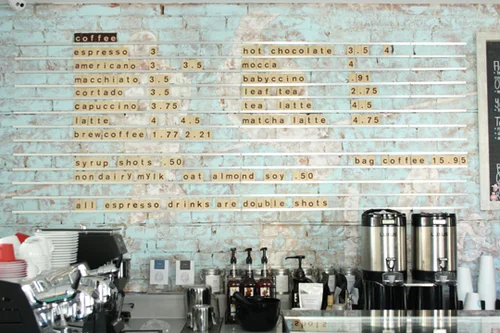 coffee
espresso 3
americano 3.5
macchiato 3.5
cortado 3.5
capuccino 3.75
latte 4 4.5
brewcoffee 1.77 2.21
hot chocolate 3.5 4
mocca 4
babyccino .91
leaf tea 2.75
tea latte 4.5
matcha latte 4.75
syrup shots .50
bag coffee 15.95
nondairy mylk oat almond soy .50
all espresso drinks are double shots